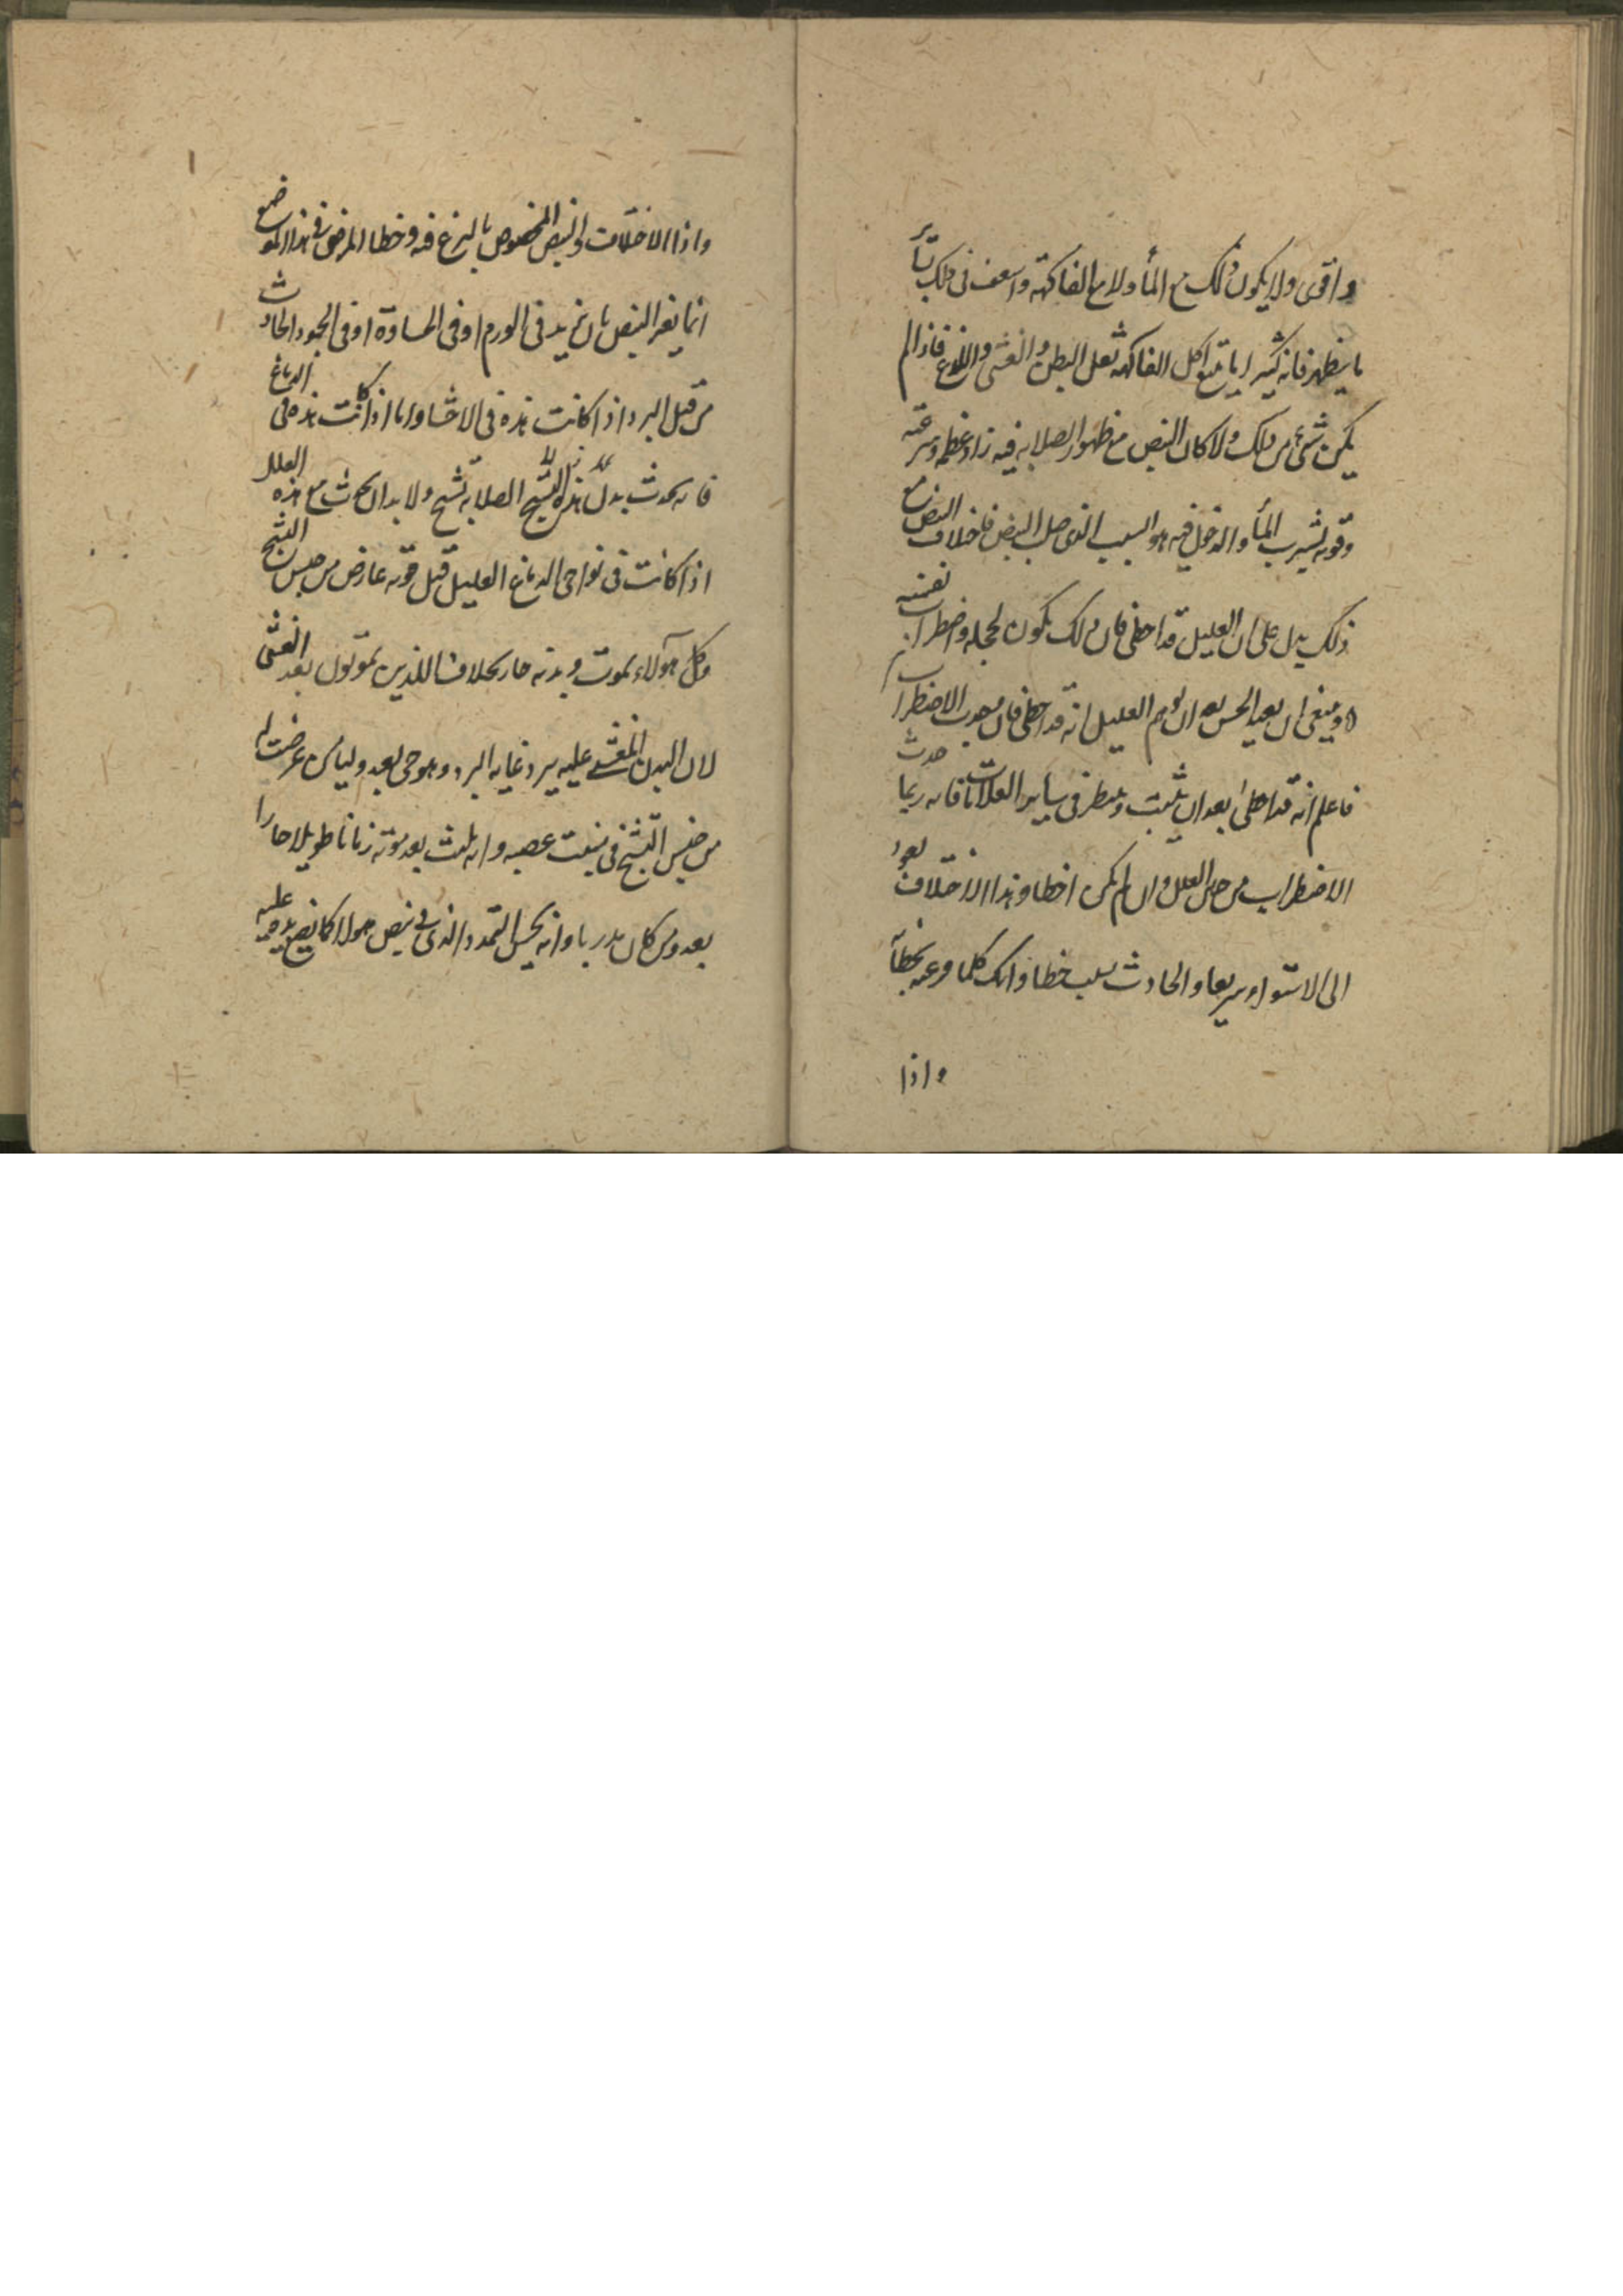 واقوى ولا يكون ذلك مع المأ ولا مع الفاكهة واسعف فى ذلك بسائر
ما يظهر فانه كثيرا ما يتبع اكل الفاكهة ثقل البطن والغشى واللذع فاذا لم
يكن شىء من ذلك ولا كان النبض مع ظهور الصلابه فيه زاد عظمه وسرعته
وقوته بشرب المأ والدخول فيه هو السبب الذى صلب النبض فاختلاف النبض مع
ذلك يدل على ان العليل قد اخطى فان ذلك يكون لخجله واضطراب نفسه
وينبغى ان يعيد الجس بعد ان يوهم العليل انه قد اخطى فان الاضطراب
فاعلم انه قد اخطى بعد ان تثبت وينظر فى ساير العلامات فانه ربما حدث
الاضطراب من العليل وان لم يكن اخطا وهذا الاختلاف يعود
الى الاستواء سريعا والحادث بسبب خطا وانك كلما فزعته بخطآ
واذا
واذا الاختلاف والنبض المخصوص بالنزع فيه وخطا المرض فى هذا الموضع
انما يغير النبض بان يزيد فى الورم او فى الحساوة او فى الجمود الحادث
من قبل البرد اذا كانت هذه فى الاحشا واما اذا كانت هذه فى الدماغ
فانه يحدث بدل هذه الصلابه تشنج ولا بد ان يحدث مع هذه العلل
اذا كانت فى نواحى الدماغ العليل قبل موته عارض من جنس التشنج
وكل هولاء يموت وبدنه حار بخلاف اللذين يموتون بعد الغشى
لان البدن المغشى عليه يبرد غايه البرد وهو حى بعد وليا من عرضت له
من جنس التشنج فى منبت عصبه وانه يلبث بعد موته زمانا طويلا حارا
بعد ومن كان مدربا وانه يحس التمدد الذى فى نبض هولا كما يضع يده عليه